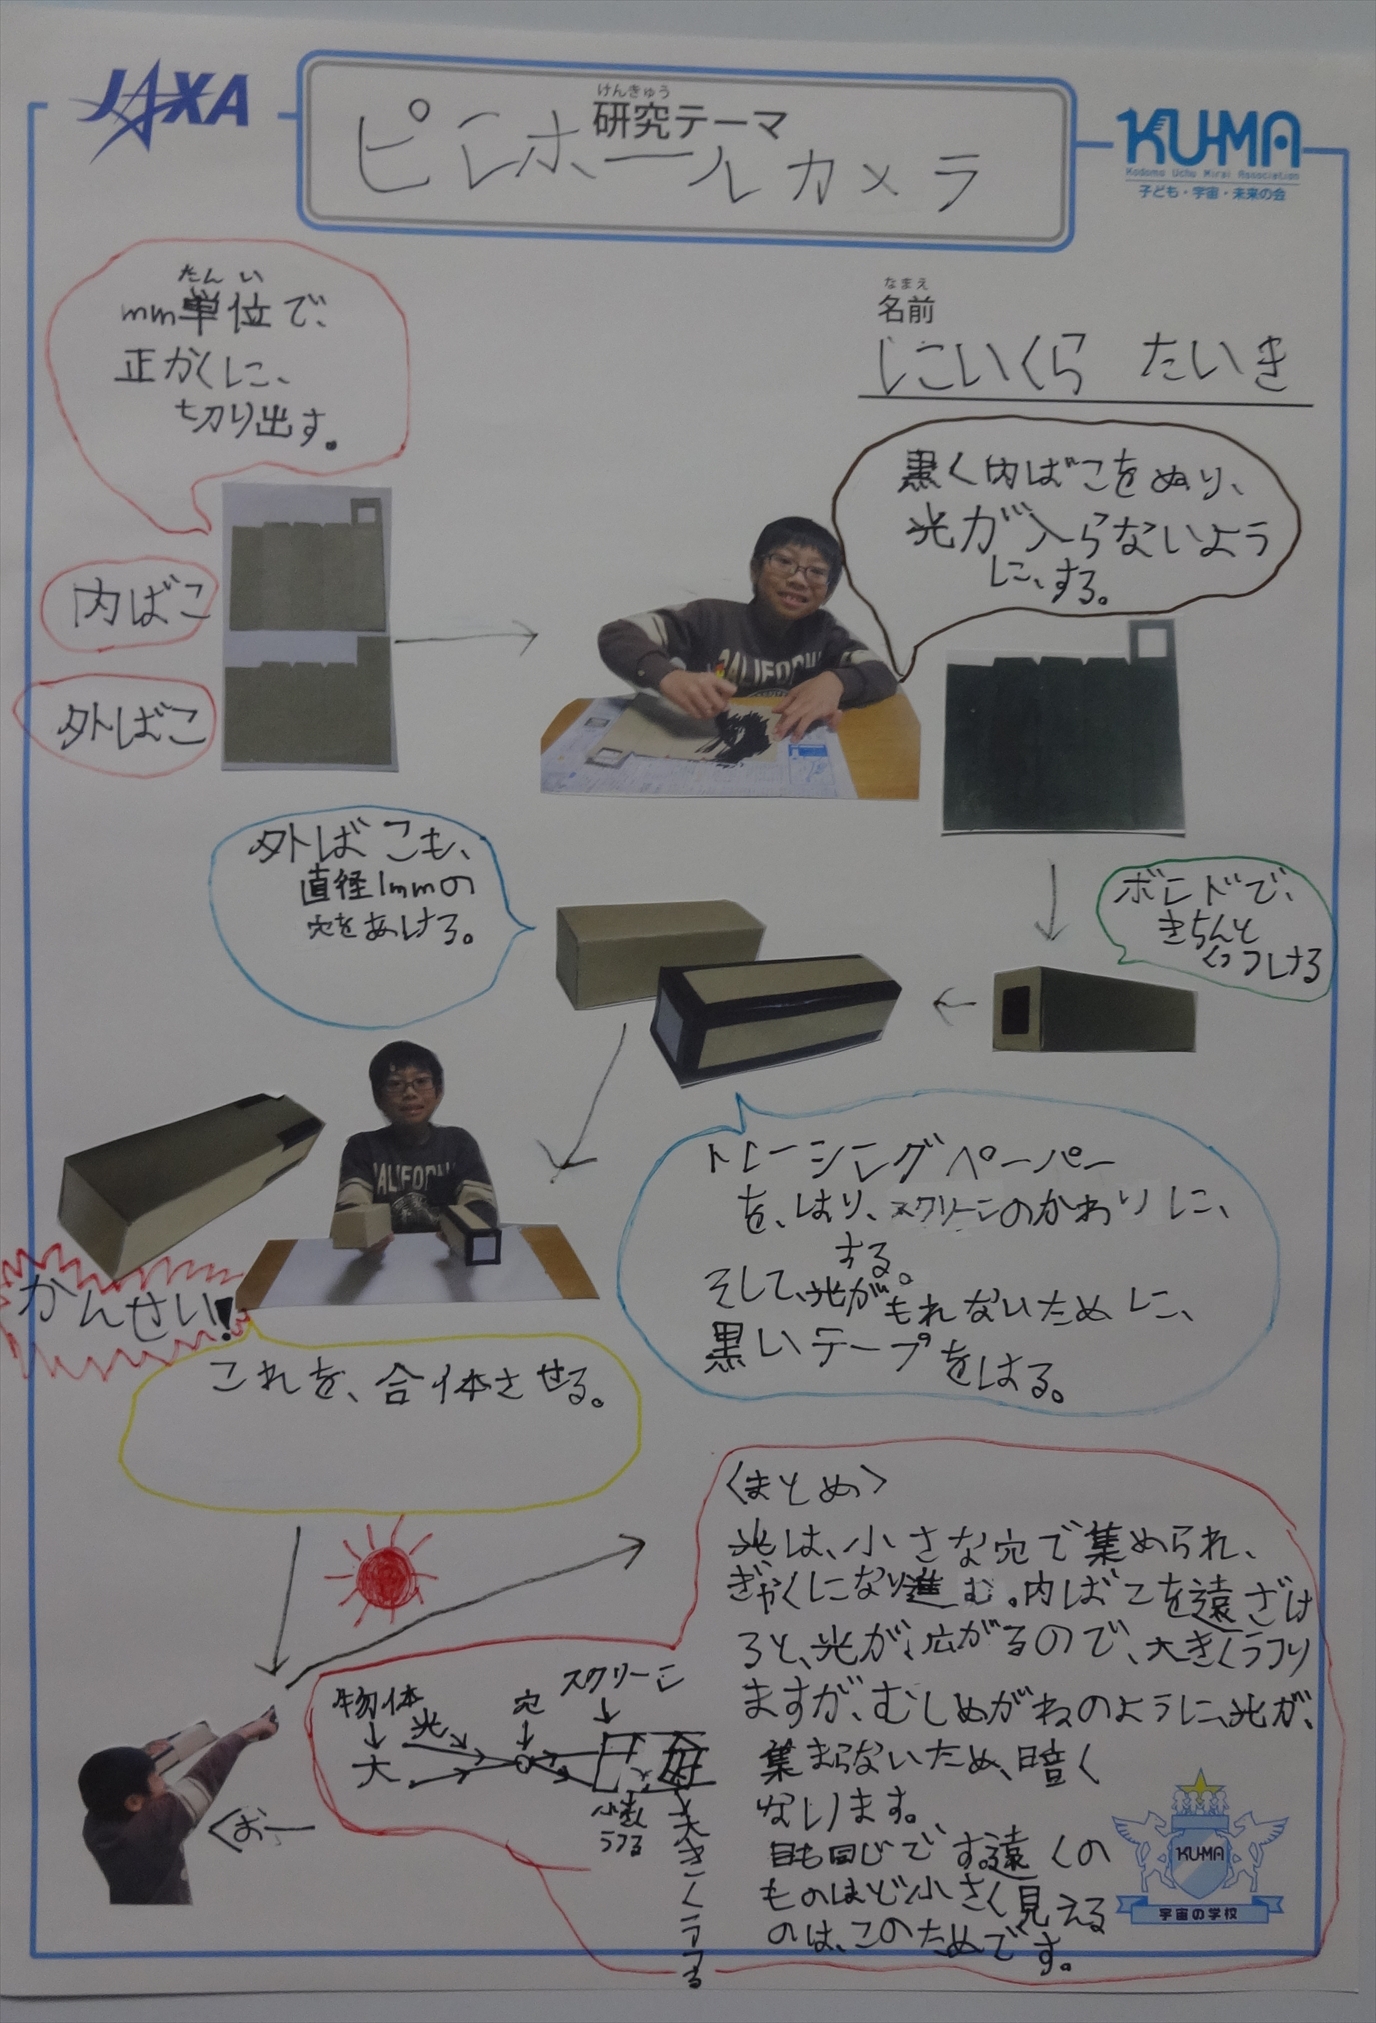 JAXA
けんきゅう
研究テーマ
ピンホールカメラ
KU-MA
Kodomo Uchu Mirai Association
子ども・宇宙・未来の会
なまえ
名前
にいくら たいき
たんい
mm単位で、
正かくに、
切り出す。
内ばこ
外ばこ
黒く内ばこをぬり、
光が入らないよう
に、する。
ボンドで、
きちんと
くっつける
外ばこも、
直径1mmの
穴をあける。
トレーシングペーパー
を、はり、スクリーンのかわりに、
する。
そして、光がもれないために、
黒いテープをはる。
かんせい!
これを、合体させる。
〈まとめ〉
光は、小さな穴で集められ、
ぎゃくになり進む。内ばこを遠ざけ
ると、光が、広がるので、大きくうつり
ますが、むしめがねのように、光が、
集まらないため、暗く
なります。
目も同じです。遠くの
ものほど小さく見える
のは、このためです。
物体
光
穴
スクリーン
大
小さく
うつる
大きくうつる
おー
KU-MA
宇宙の学校